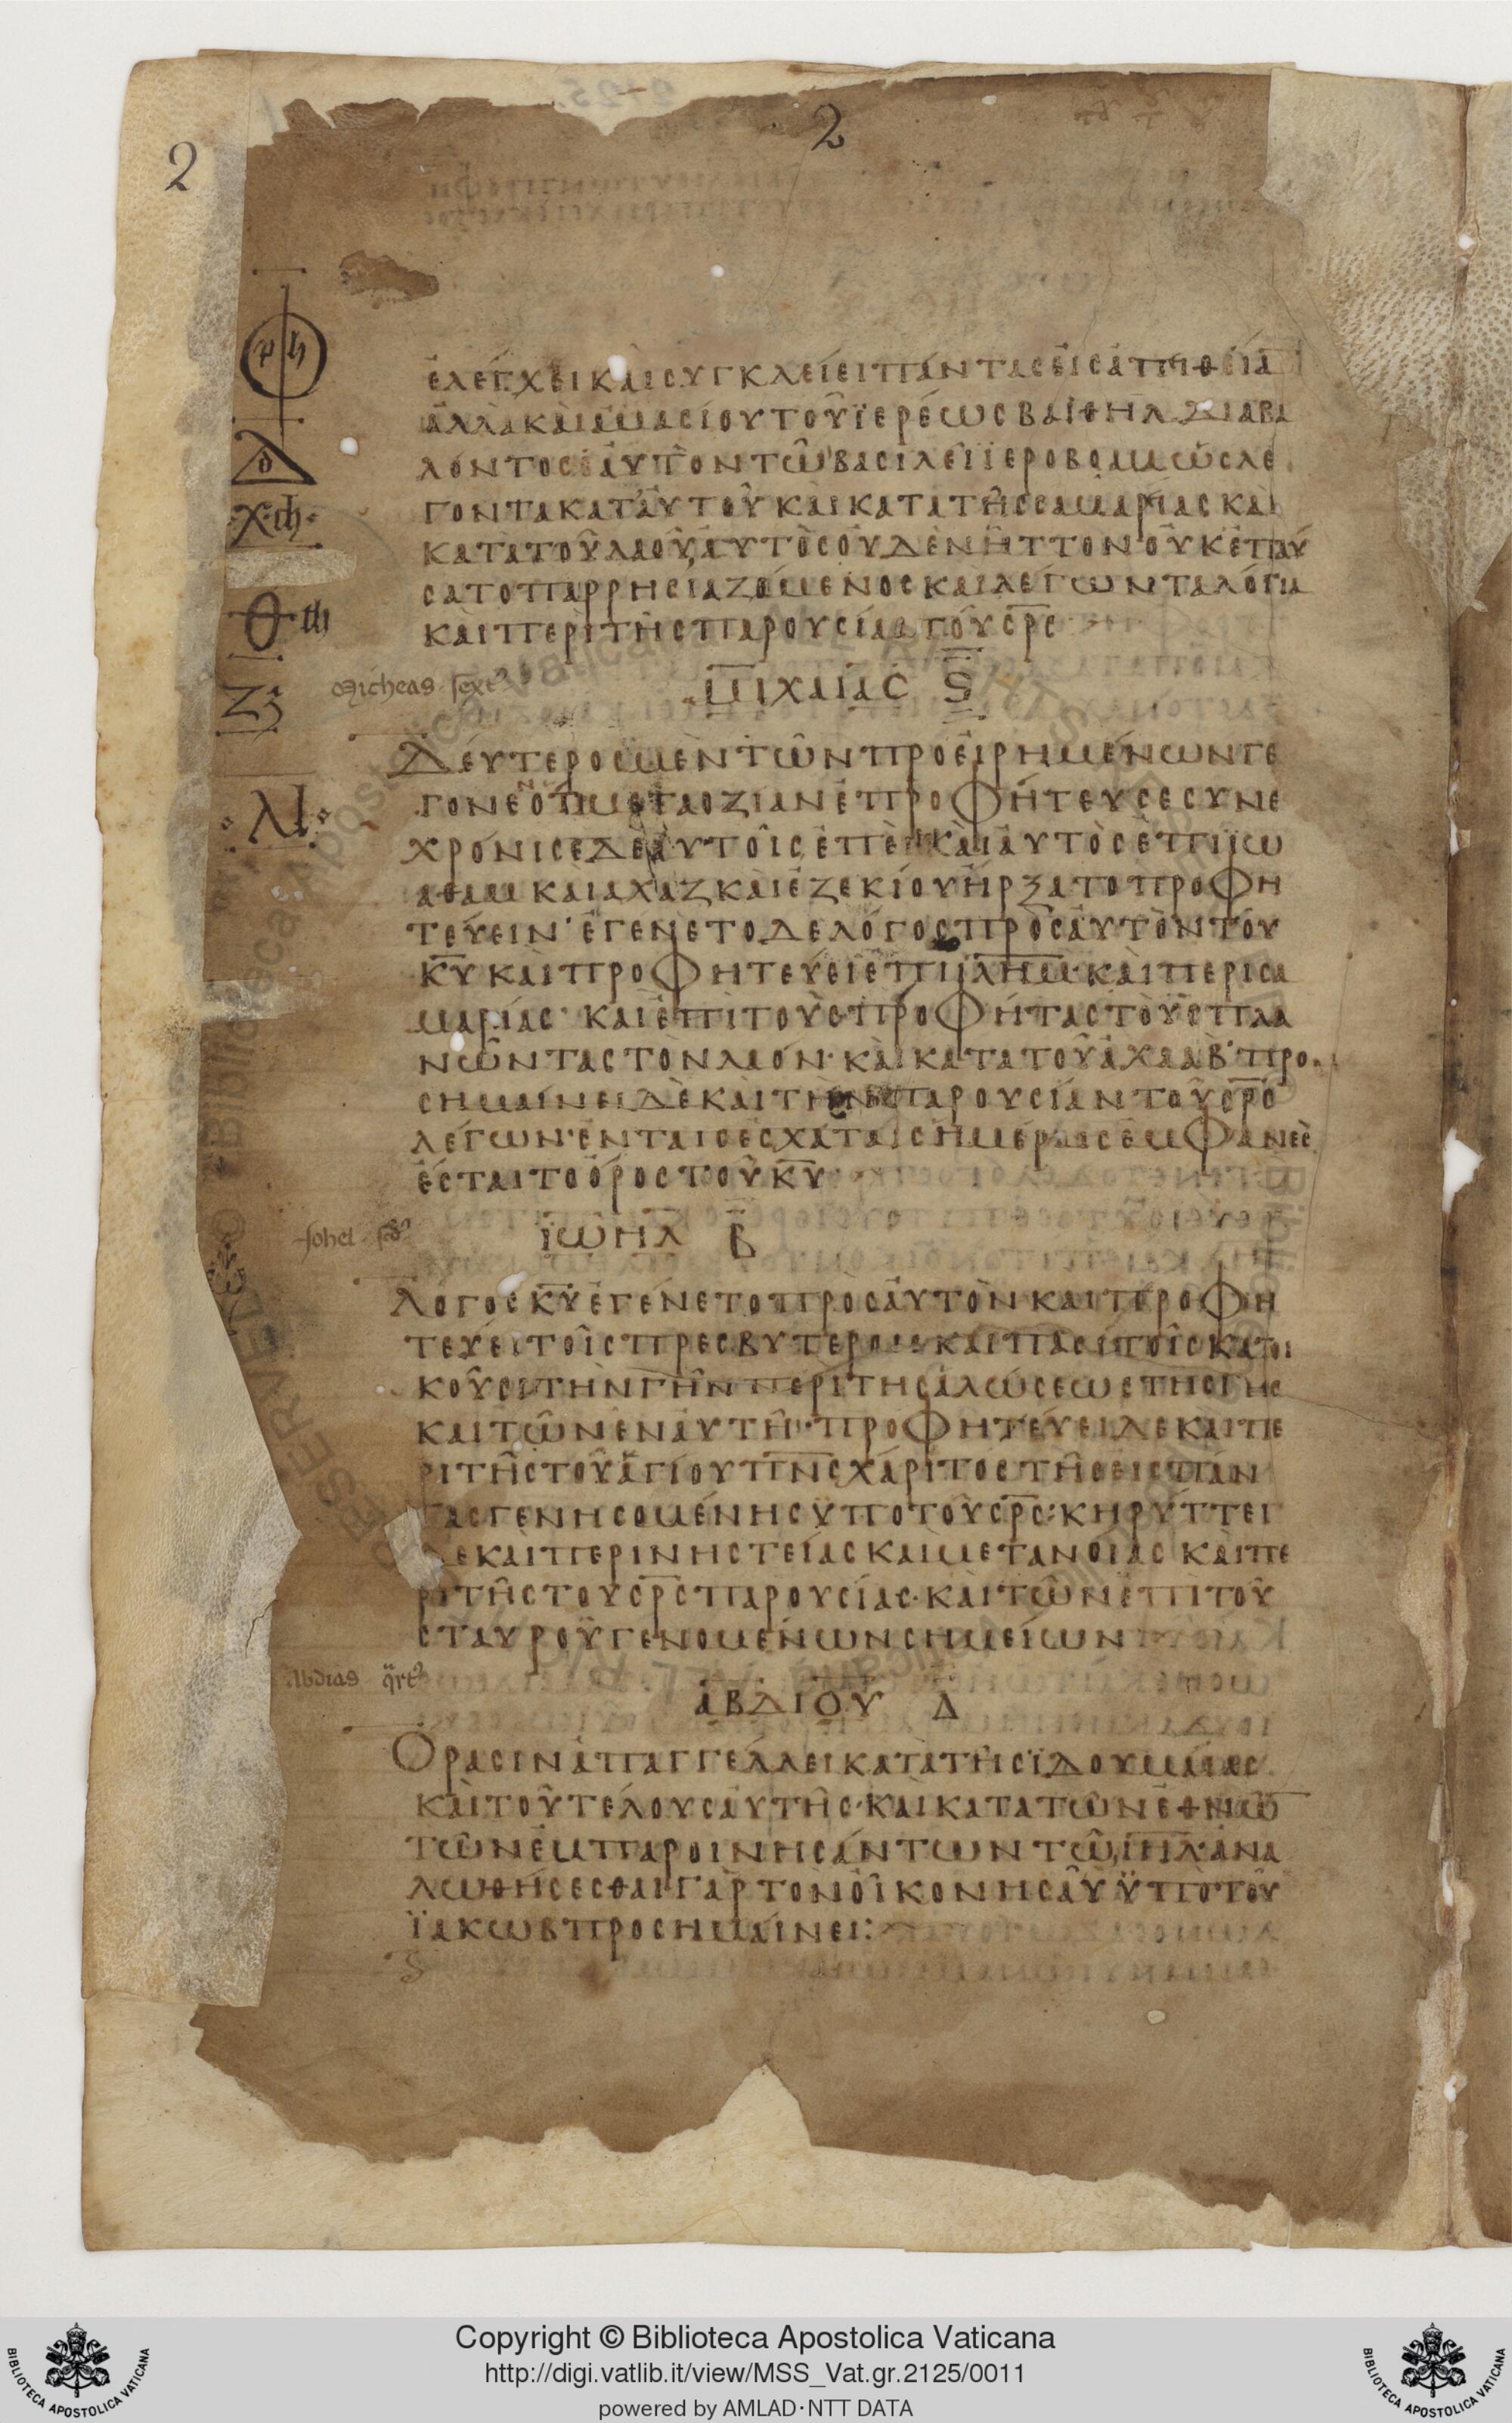 2
2
ἐλέγχει καὶ συγκλείει πάντας εἰς ἀπειθεία
ἀλλὰ καὶ αμασίου τοῦ ϊερέως βαιθηλ διαβα
λόντος αὐτὸν τῷ βασιλεῖ ϊεροβοαμ ὡς λέ
γοντα κατ' αὐτοῦ καὶ κατὰ τῆς σαμαρίας καὶ
κατὰ τοῦ λαοῦ, αὐτὸς οὐδὲν ἧττον οὐκ ἐπαύ
σατο παρρησιαζόμενος καὶ λέγων τὰ λόγια
καὶ περὶ τῆς παρουσίας τοῦ σρς
Micheas sext9
μιχαίας ς
Δεύτερος μὲν τῶν προειρημένων γέ
γονεν ὅτι μετὰ οζίαν ἐπροφήτευσε συνε
χρόνισε δὲ αὐτοῖς ἐπεὶ καὶ αὐτὸς ἐπὶ ϊω
αθαμ καὶ αχαζ καὶ ἐζεκίου ἤρξατο προφη
τεύειν· ἐγένετο δὲ λόγος πρὸς αὐτὸν τοῦ
κυ καὶ προφητεύει ἐπὶ ϊλημ· καὶ περι σα
μαρίας· καὶ ἐπὶ τοὺς προφήτας τοὺς πλα
νῶντας τὸν λαόν· καὶ κατὰ τοῦ ἀχααβ· προ
σημαίνει δὲ καὶ τὴν παρουσίαν τοῦ σρς
λέγων· ἐν ταῖς ἐσχάταις ἡμέραις ἐμφανὲς
ἔσται τὸ ὄρος τοῦ κυ
Johel scd9
ϊωηλ β
Λόγος κυ ἐγένετο πρὸς αὐτὸν καὶ προφη
τεύει τοῖς πρεσβυτέροις καὶ πᾶσι τοῖς κατοι
κοῦσι τὴν γῆν περὶ τῆς ἁλώσεως τῆς γῆς
καὶ τῶν ἐν αὐτῇ· προφητεύει δὲ καὶ πε
ρὶ τῆς τοῦ ἁγίου πνς χάριτος τῆς εἰς πάν
τας γενησομένης ϋπὸ τοῦ σρς: κηρύττει
δὲ καὶ περὶ νηστείας καὶ μετανοίας καὶ πε
ρὶ τῆς τοῦ σρς παρουσίας· καὶ τῶν ἐπὶ τοῦ
σταυροῦ γενομένων σημείων
Abdias qrt9
ἀβδιου δ
Ορασιν ἀπαγγέλλει κατὰ τῆς ϊδουμαίας
καὶ τοῦ τέλους αὐτῆς· καὶ κατὰ τῶν ἐθνῶ
τῶν ἐμπαροινησάντων τῷ ιηλ· ἀνα
λωθήσεσθαι γὰρ τὸν οἶκον ησαῦ ϋπὸ τοῦ
ϊακωβ προσημαίνει:
Copyright © Biblioteca Apostolica Vaticana
http://digi.vatlib.it/view/MSS_Vat.gr.2125/0011
powered by AMLAD·NTT DATA
BIBLIOTECA APOSTOLICA VATICANA
BIBLIOTECA APOSTOLICA VATICANA